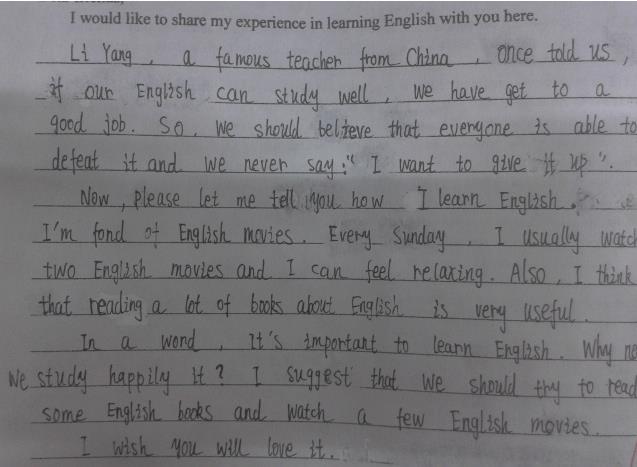 I would like to share my experience in learning English with you here.
Li Yang, a famous teacher from China, once told us,
if our English can study well, we have get to a
good job. So, we should believe that everyone is able to
defeat it and we never say: "I want to give it up".
Now, please let me tell you how I learn English.
I'm fond of English movies. Every Sunday, I usually watch
two English movies and I can feel relaxing. Also, I think
that reading a lot of books about English is very useful.
In a word, It's important to learn English. Why
We study happily it? I suggest that we should try to read
some English books and watch a few English movies.
I wish you will love it.